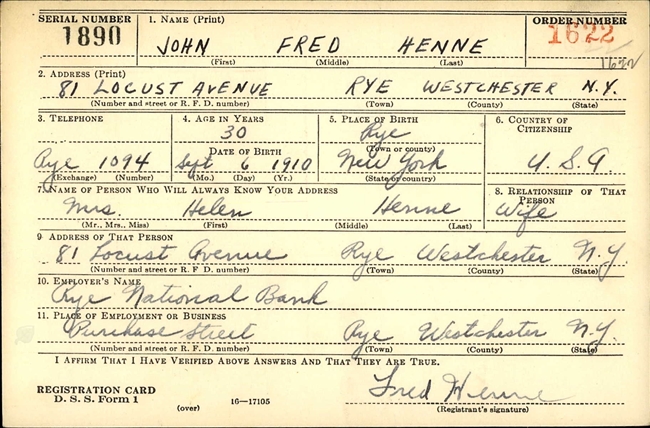 SERIAL NUMBER 1. NAME (Print) ORDER NUMBER
1890 JOHN FRED HENNE 1622
(First) (Middle) (Last) 1622
2. ADDRESS (Print)
81 LOCUST AVENUE RYE WESTCHESTER N.Y.
(Number and street or R. F. D. number) (Town) (County) (State)
3. TELEPHONE 4. AGE IN YEARS 5. PLACE OF BIRTH 6. COUNTRY OF CITIZENSHIP
30 Rye
(Town or county)
DATE OF BIRTH
Rye 1094 Sept 6 1910 New York U.S.A.
(Exchange) (Number) (Mo.) (Day) (Yr.) (State or country)
7. NAME OF PERSON WHO WILL ALWAYS KNOW YOUR ADDRESS 8. RELATIONSHIP OF THAT PERSON
Mrs. Helen Henne Wife
(Mr., Mrs., Miss) (First) (Middle) (Last)
9 ADDRESS OF THAT PERSON
81 Locust Avenue Rye Westchester N.Y.
(Number and street or R. F. D. number) (Town) (County) (State)
10. EMPLOYER'S NAME
Rye National Bank
11. PLACE OF EMPLOYMENT OR BUSINESS
Purchase Street Rye Westchester N.Y.
(Number and street or R. F. D. number) (Town) (County) (State)
I AFFIRM THAT I HAVE VERIFIED ABOVE ANSWERS AND THAT THEY ARE TRUE.
Fred Henne
REGISTRATION CARD
D. S. S. Form 1 (over) 16—17105 (Registrant's signature)